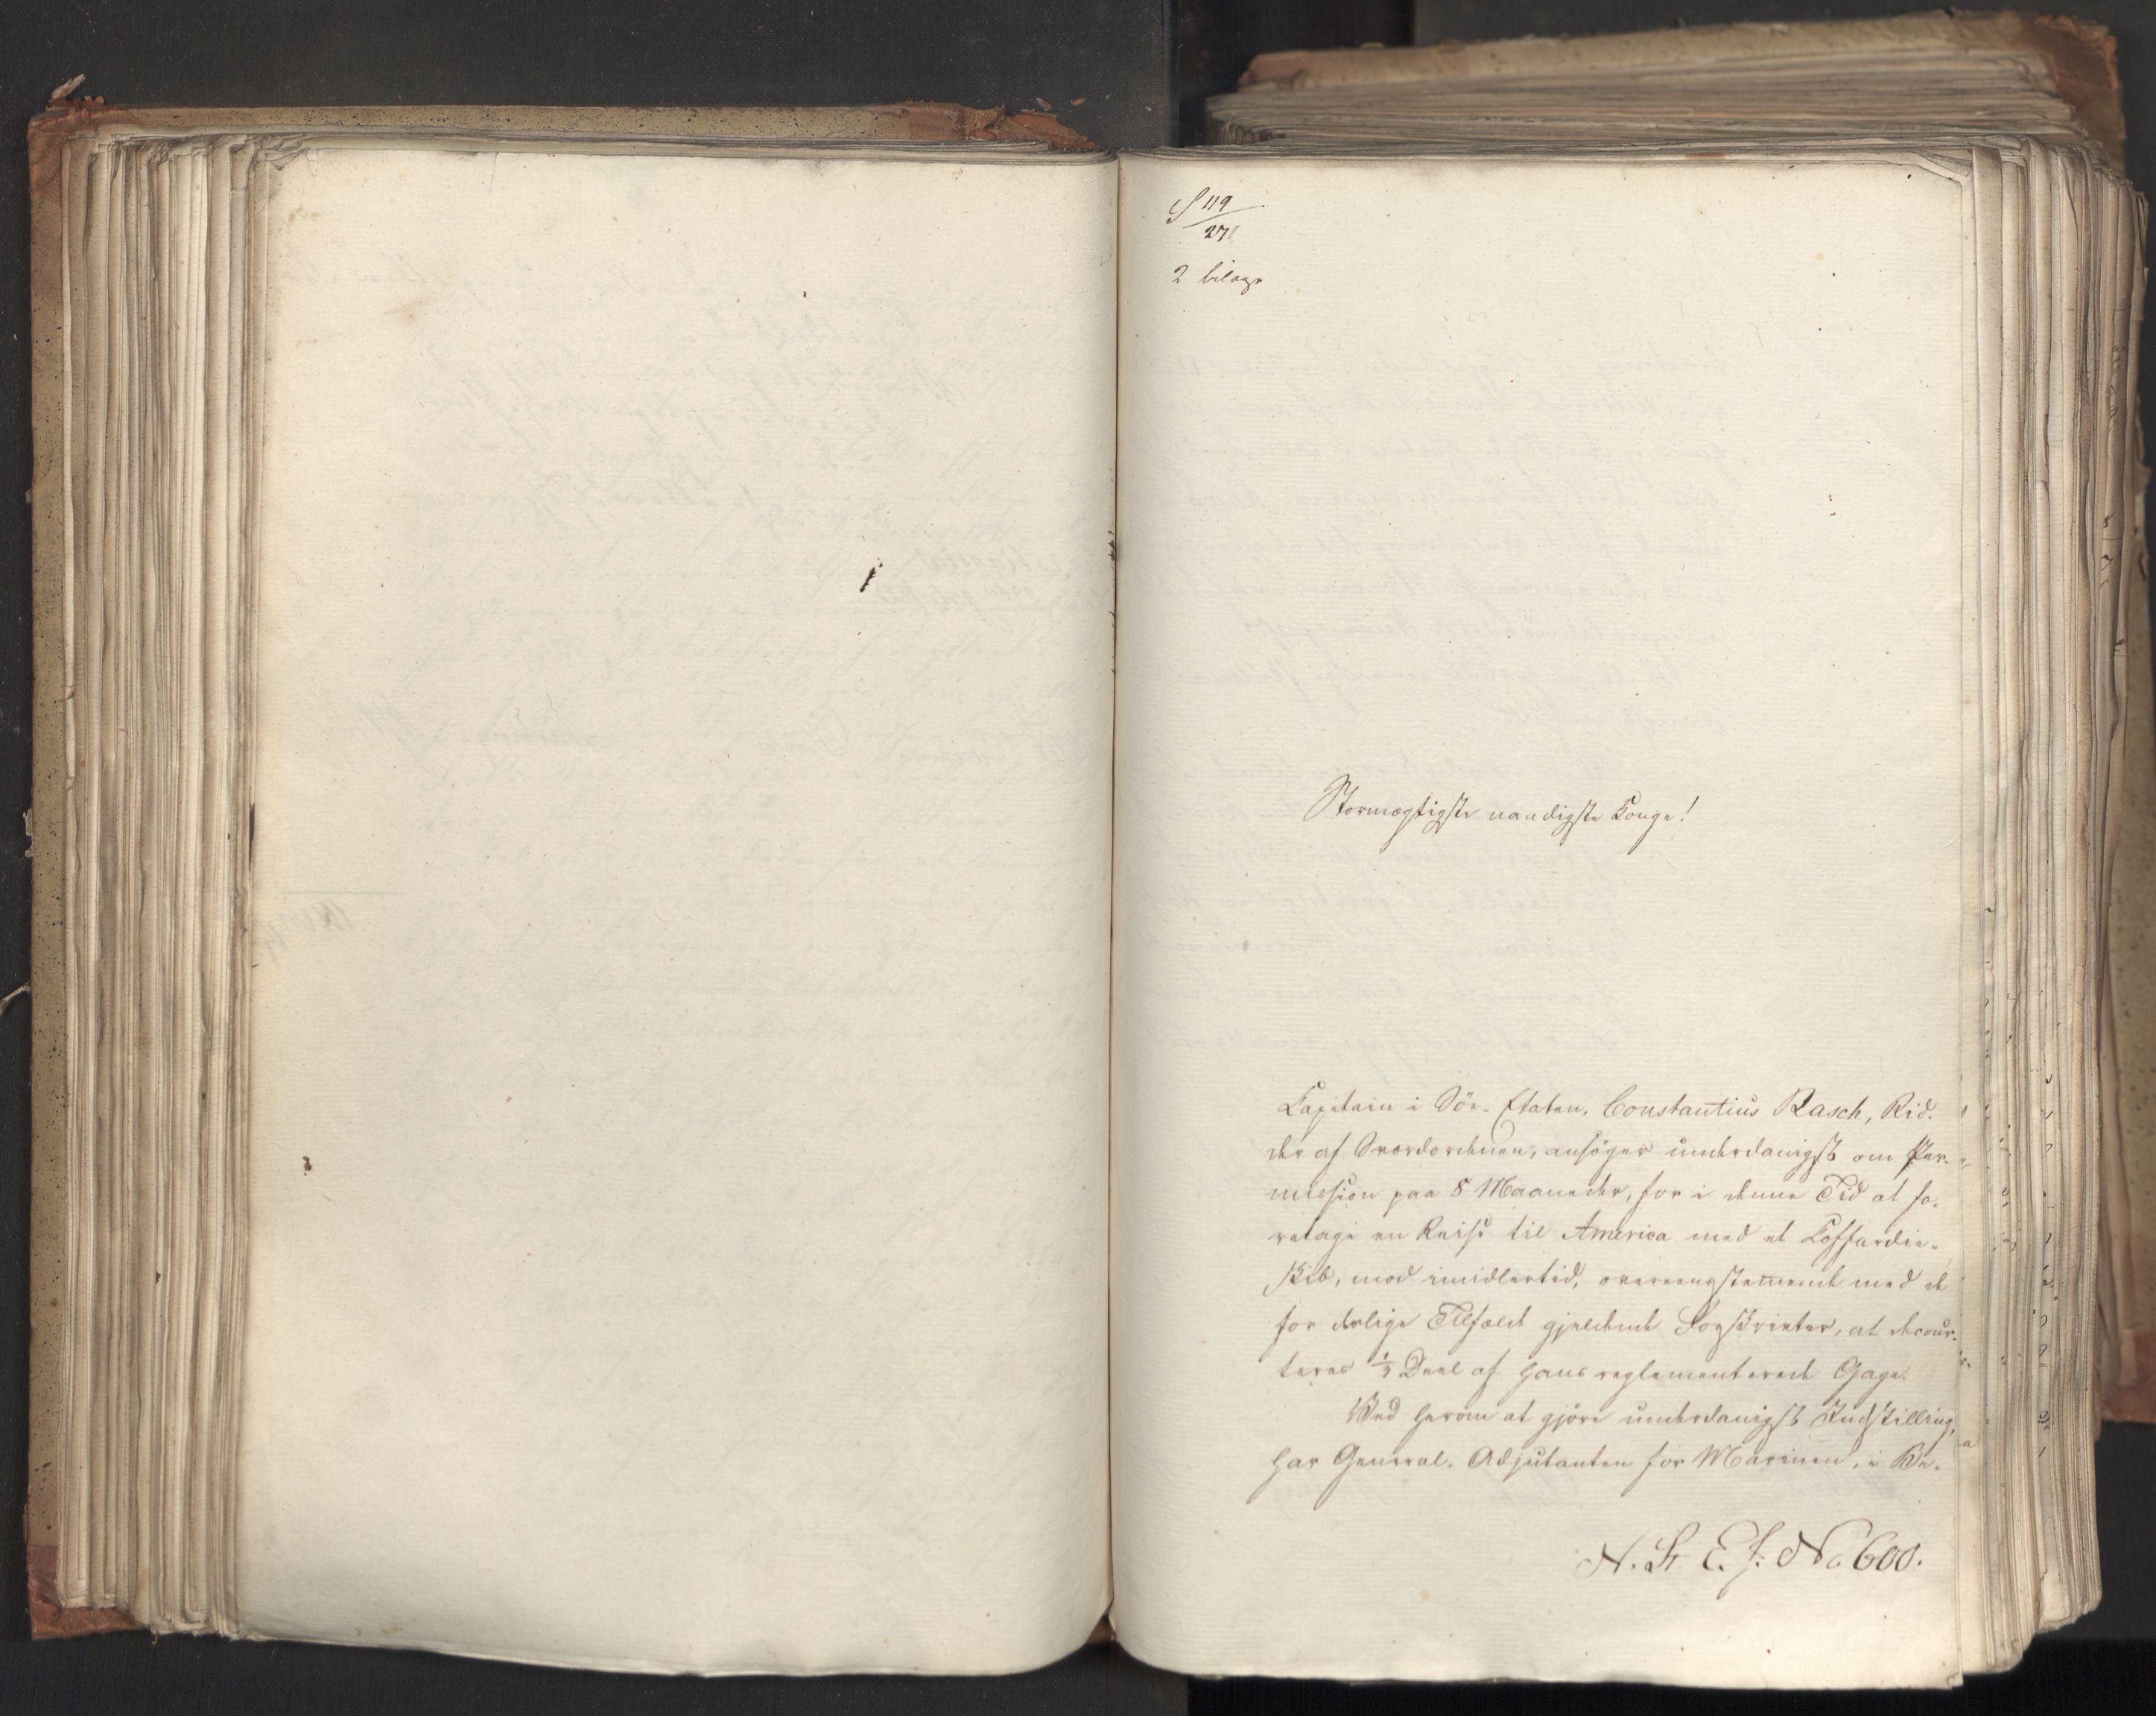 S 119
271
2 bilage
Stormægtigste naadigste Konge!
Capitain i Söe-Etaten, Constantius Rasch, Rid-
der af Sværdordenen, ansöger underdanigst om Per-
mission paa 8 Maaneder, for i denne Tid at fo-
retage en Reise til America med et Coffardie-
skib, mod imidlertid, overeensstemmende med de
for deslige Tilfælde gjældende Forskrivter, at decour-
teres 1/3 Deel af hans reglementerede Gage.
Ved herom at gjöre underdanigst Indstilling,
har General-Adjutanten for Marinen, i Be-
N. St. E. J. No 600.